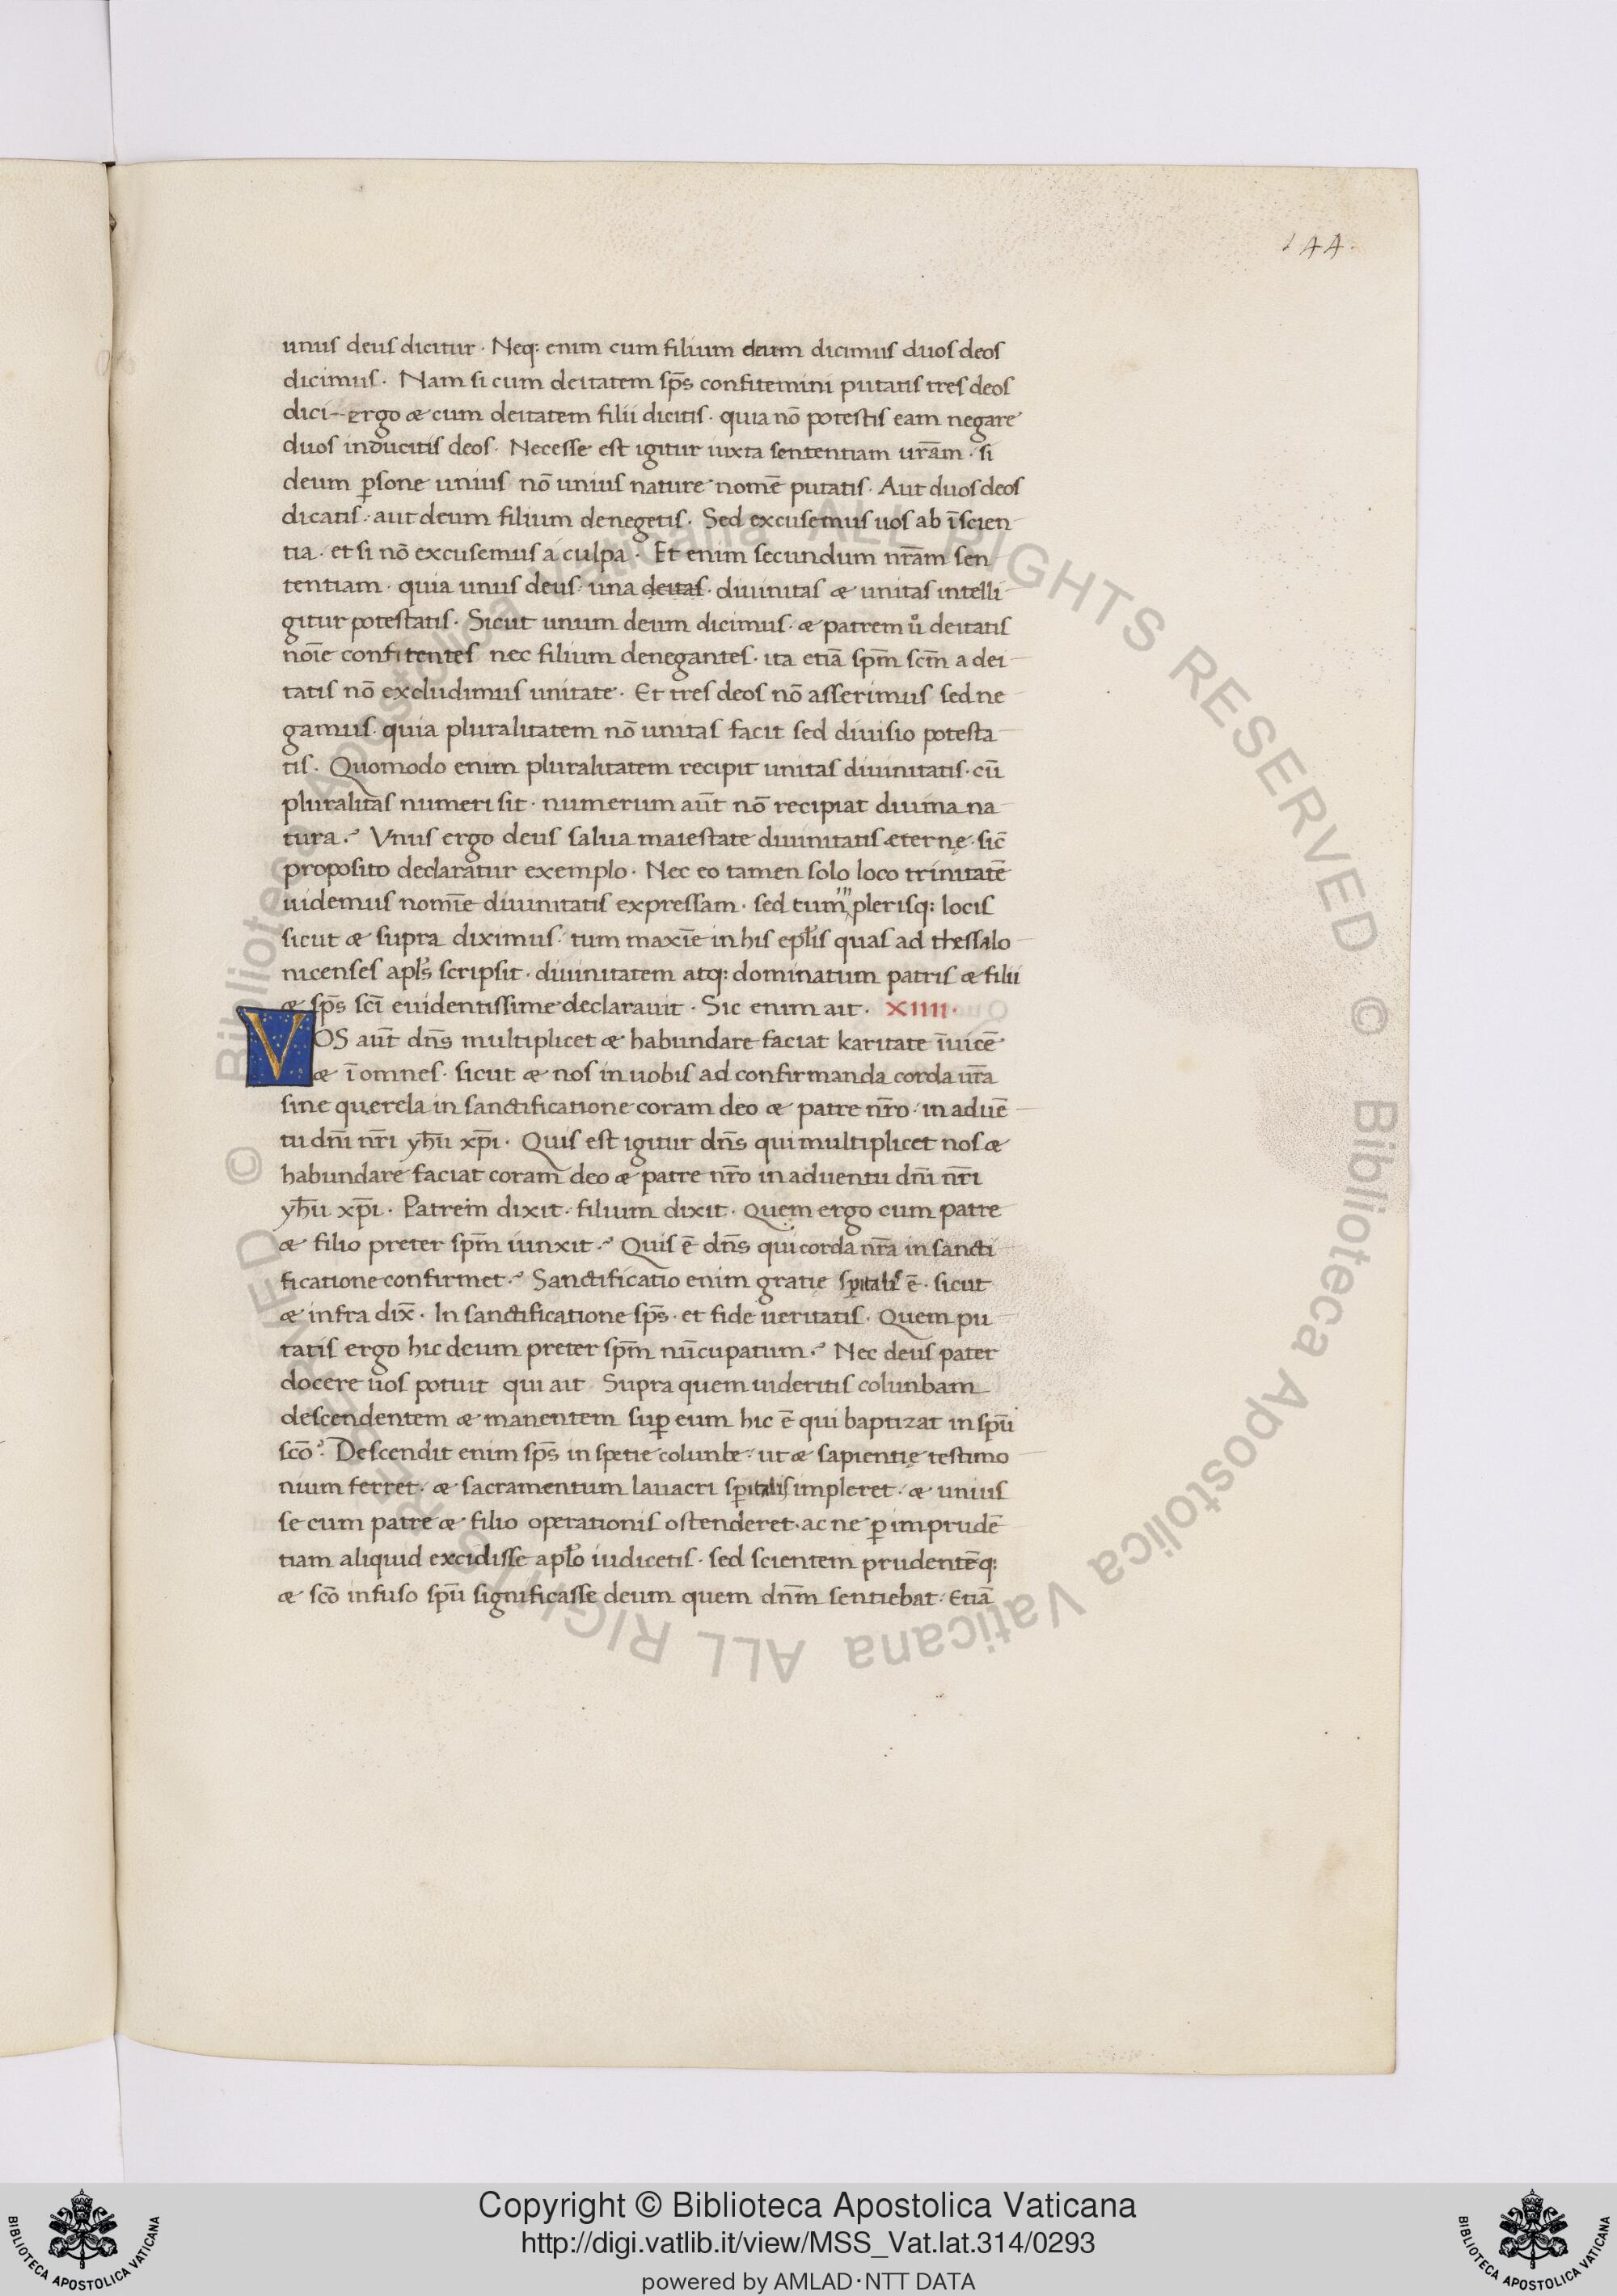 144.
unus deus dicitur · Neq; enim cum filium deum dicimus duos deos
dicimus · Nam si cum deitatem sp̄s confitemini putatis tres deos
dici– ergo & cum deitatem filii dicitis · quia nō potestis eam negare
duos inducitis deos · Necesse est igitur iuxta sententiam ur̄am · si
deum ꝑsone unius nō unius nature nomē putatis · Aut duos deos
dicatis · aut deum filium denegetis · Sed excusemus uos ab īscien
tia · et si nō excusemus a culpa · Et enim secundum nr̄am sen
tentiam · quia unus deus · una deitas · diuinitas & unitas intelli
gitur potestatis · Sicut unum deum dicimus · & patrem uͦ deitatis
noīe confitentes nec filium denegantes · ita etiā sp̄m sc̄m a dei
tatis nō excludimus unitate · Et tres deos nō asserimus sed ne
gamus · quia pluralitatem nō unitas facit sed diuisio potesta
tis · Quomodo enim pluralitatem recipit unitas diuinitatis · cū
pluralitas numeri sit · numerum aūt nō recipiat diuina na
tura ·? Vnus ergo deus salua maiestate diuinitatis æternę · sic̄
proposito declaratur exemplo · Nec eo tamen solo loco trinitatē
uidemus nomīe diuinitatis expressam · sed tum plerisq; locis
sicut & supra diximus · tum maxīe in his epl̄is quas ad thessalo
nicenses apl̄s scripsit · diuinitatem atq; dominatum patris & filii
& sp̄s sc̄i euidentissime declarauit · Sic enim ait · XIIII ·
VOS aūt dn̄s multiplicet & habundare faciat karitate īuicē
& ī omnes · sicut & nos in uobis ad confirmanda corda ur̄a
sine querela in sanctificatione coram deo & patre nr̄o · in aduē
tu dn̄i nr̄i yh̄u xp̄i · Quis est igitur dn̄s qui multiplicet nos &
habundare faciat coram deo & patre nr̄o in aduentu dn̄i nr̄i
yh̄u xp̄i · Patrem dixit · filium dixit · Quem ergo cum patre
& filio preter sp̄m iunxit ·? Quis ē dn̄s qui corda nr̄a in sancti
ficatione confirmet ·? Sanctificatio enim gratie sp̄italis ē · sicut
& infra dix̄ · In sanctificatione sp̄s · et fide ueritatis · Quem pu
tatis ergo hic deum preter sp̄m nūcupatum ·? Nec deus pater
docere uos potuit qui ait Supra quem uideritis colunbam
descendentem & manentem suꝑ eum hic ē qui baptizat in sp̄u
sc̄o ? Descendit enim sp̄s in spetie colunbe · ut & sapientię testimo
nium ferret · & sacramentum lauacri sp̄italis impleret · & unius
se cum patre & filio operationis ostenderet · ac ne ꝑ imprudē
tiam aliquid excidisse apl̄o iudicetis · sed scientem prudentēq;
& sc̄o infuso sp̄u significasse deum quem dn̄m sentiebat · Etiā
Copyright © Biblioteca Apostolica Vaticana
http://digi.vatlib.it/view/MSS_Vat.lat.314/0293
powered by AMLAD·NTT DATA
BIBLIOTECA APOSTOLICA VATICANA
BIBLIOTECA APOSTOLICA VATICANA
© Biblioteca Apostolica Vaticana ALL RIGHTS RESERVED © Biblioteca Apostolica Vaticana ALL RIGHTS RESERVED